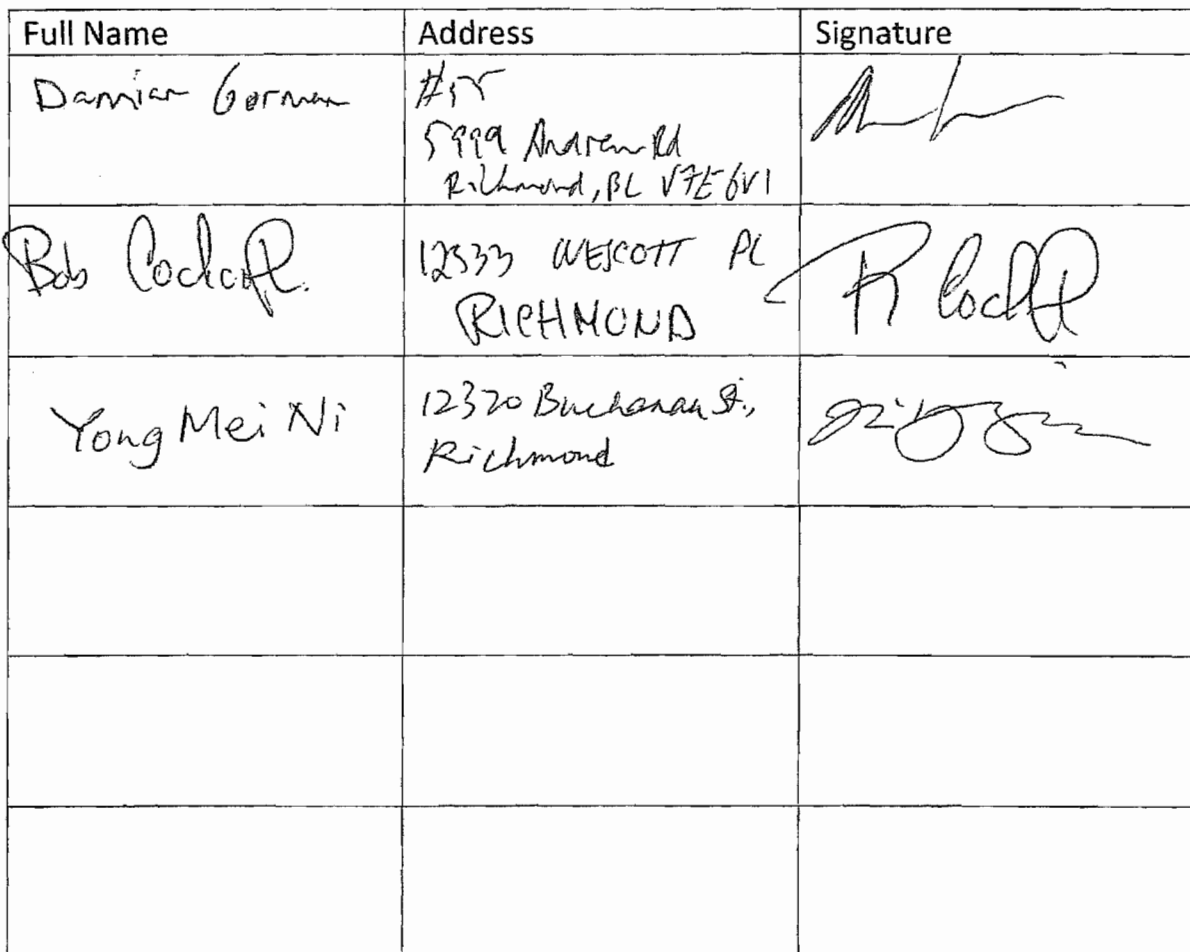 Full Name Address Signature
Damian Gorman
#55
5999 Andrews Rd
Richmond, BC V7E 6V1
Bob
12333 WESCOTT PL
RICHMOND
Yong Mei Ni
12320 Buchanan St.,
Richmond